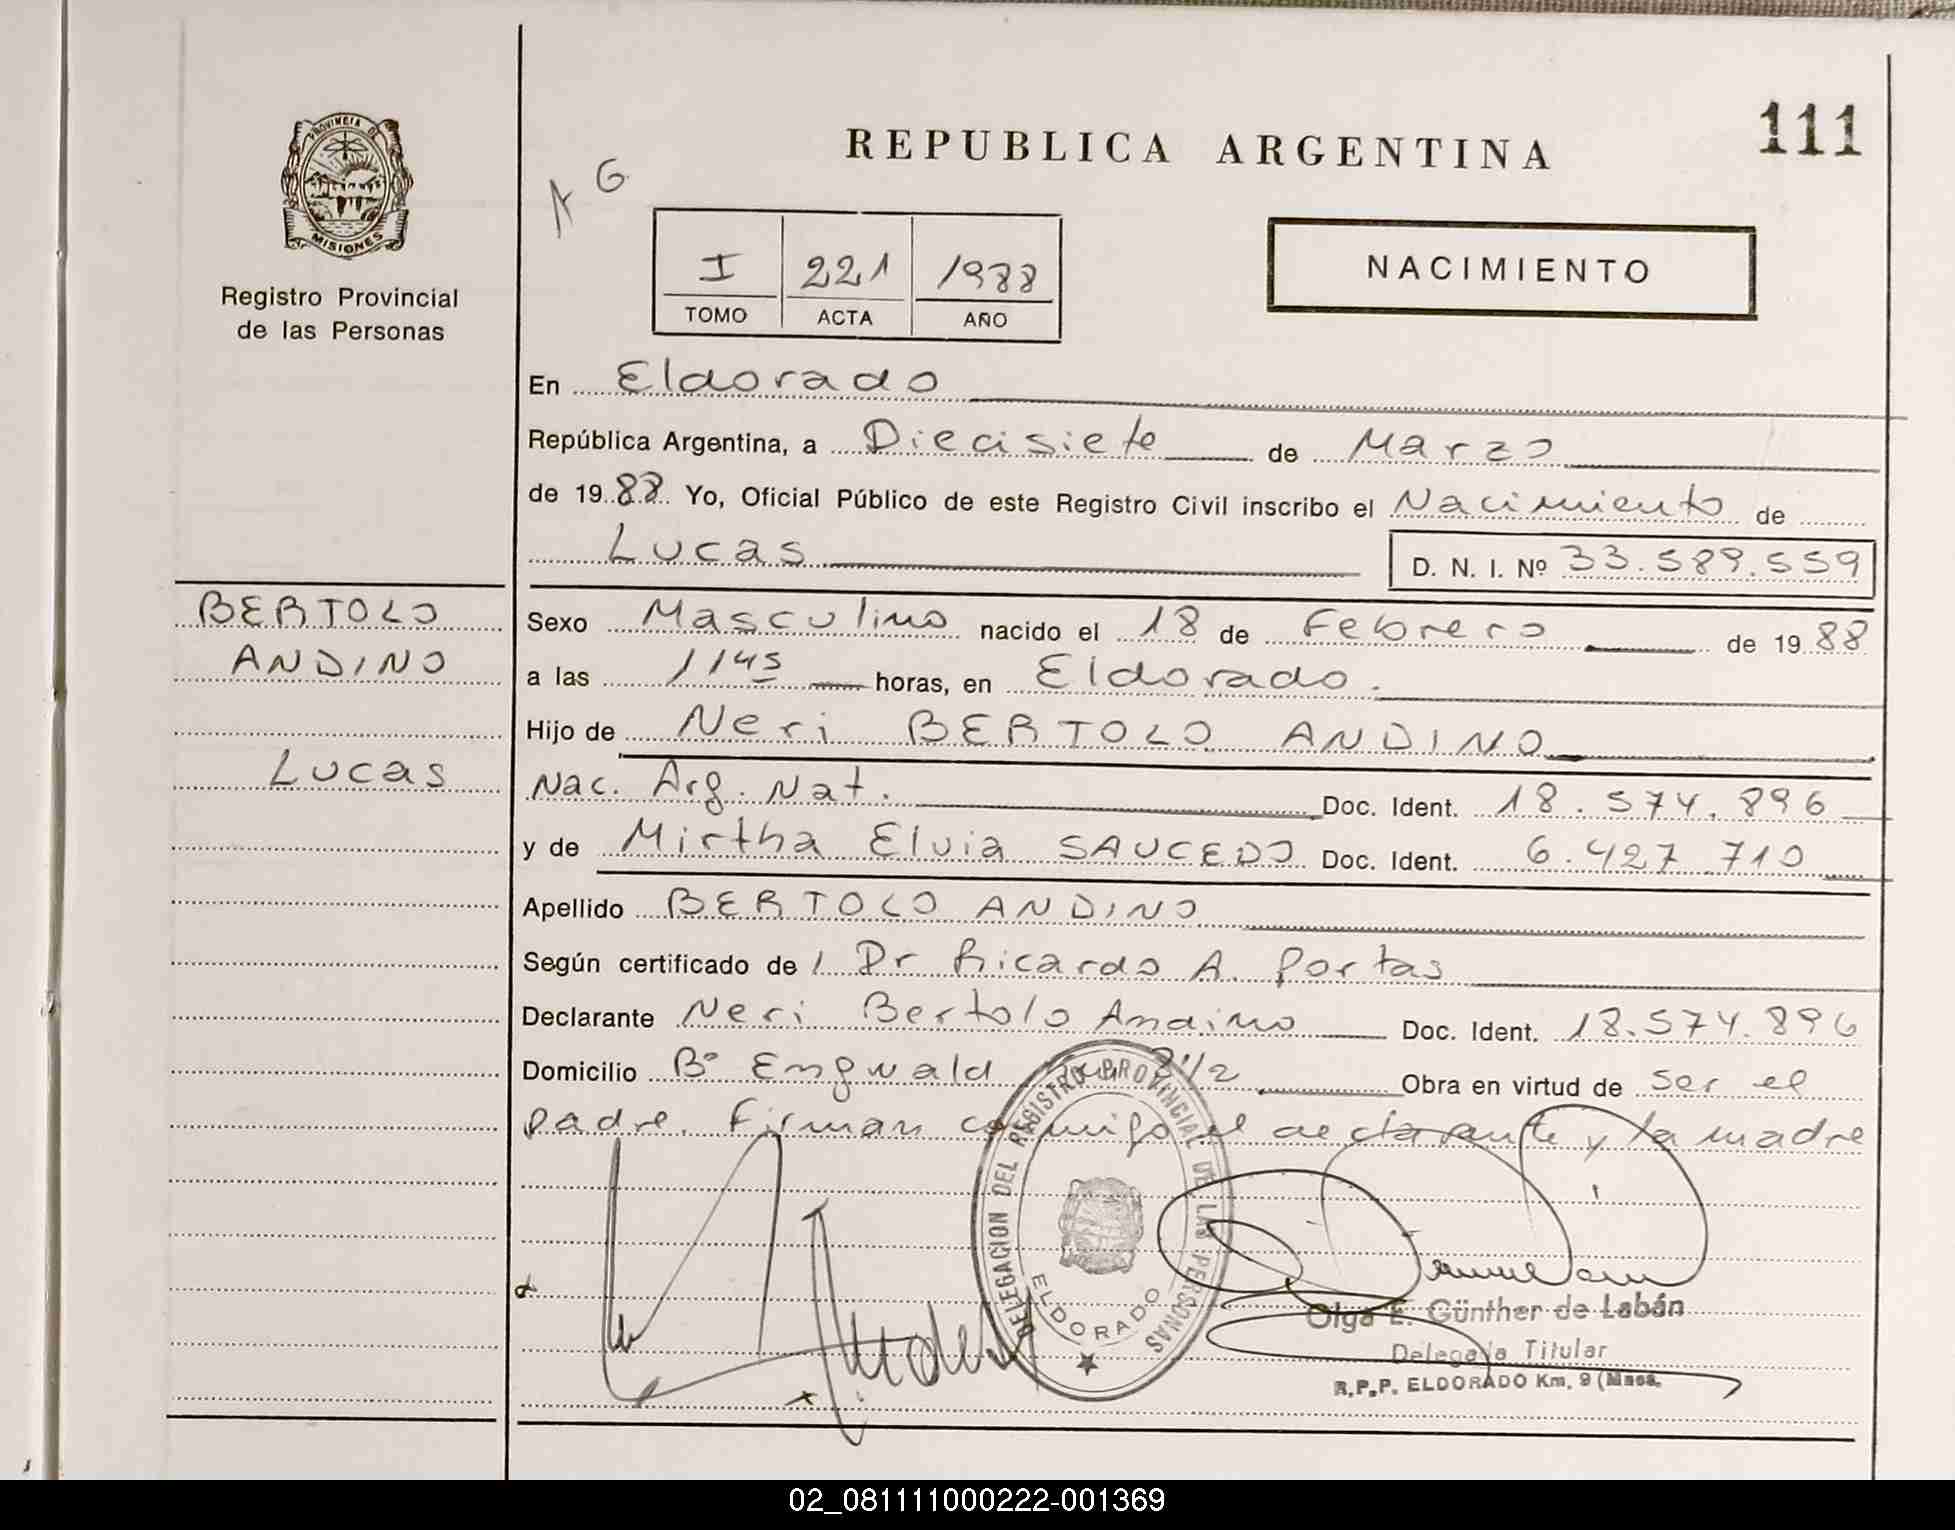 PROVINCIA DE
MISIONES
Registro Provincial
de las Personas
REPUBLICA ARGENTINA
111
A G.
I 221 1988
TOMO ACTA AÑO
NACIMIENTO
En Eldorado
República Argentina, a Diecisiete de Marzo
de 1988 Yo, Oficial Público de este Registro Civil inscribo el Nacimiento de
Lucas D. N. I. Nº 33.589.559
BERTOLO
ANDINO
Lucas
Sexo Masculino nacido el 18 de Febrero de 1988
a las 1145 horas, en Eldorado.
Hijo de Neri BERTOLO ANDINO
Nac. Arg. Nat. Doc. Ident. 18.574.896
y de Mirtha Elvia SAUCEDO Doc. Ident. 6.427.710
Apellido BERTOLO ANDINO
Según certificado de / Dr Ricardo A. Portas
Declarante Neri Bertolo Andino Doc. Ident. 18.574.896
Domicilio Bº Engwald 1/2 Obra en virtud de ser el
padre. Firman conmigo el declarante y la madre
DELEGACION DEL REGISTRO PROVINCIAL DE LAS PERSONAS
ELDORADO
Olga E. Günther de Labán
Delegada Titular
R.P.P. ELDORADO Km. 9 (Mnes.
02_081111000222-001369